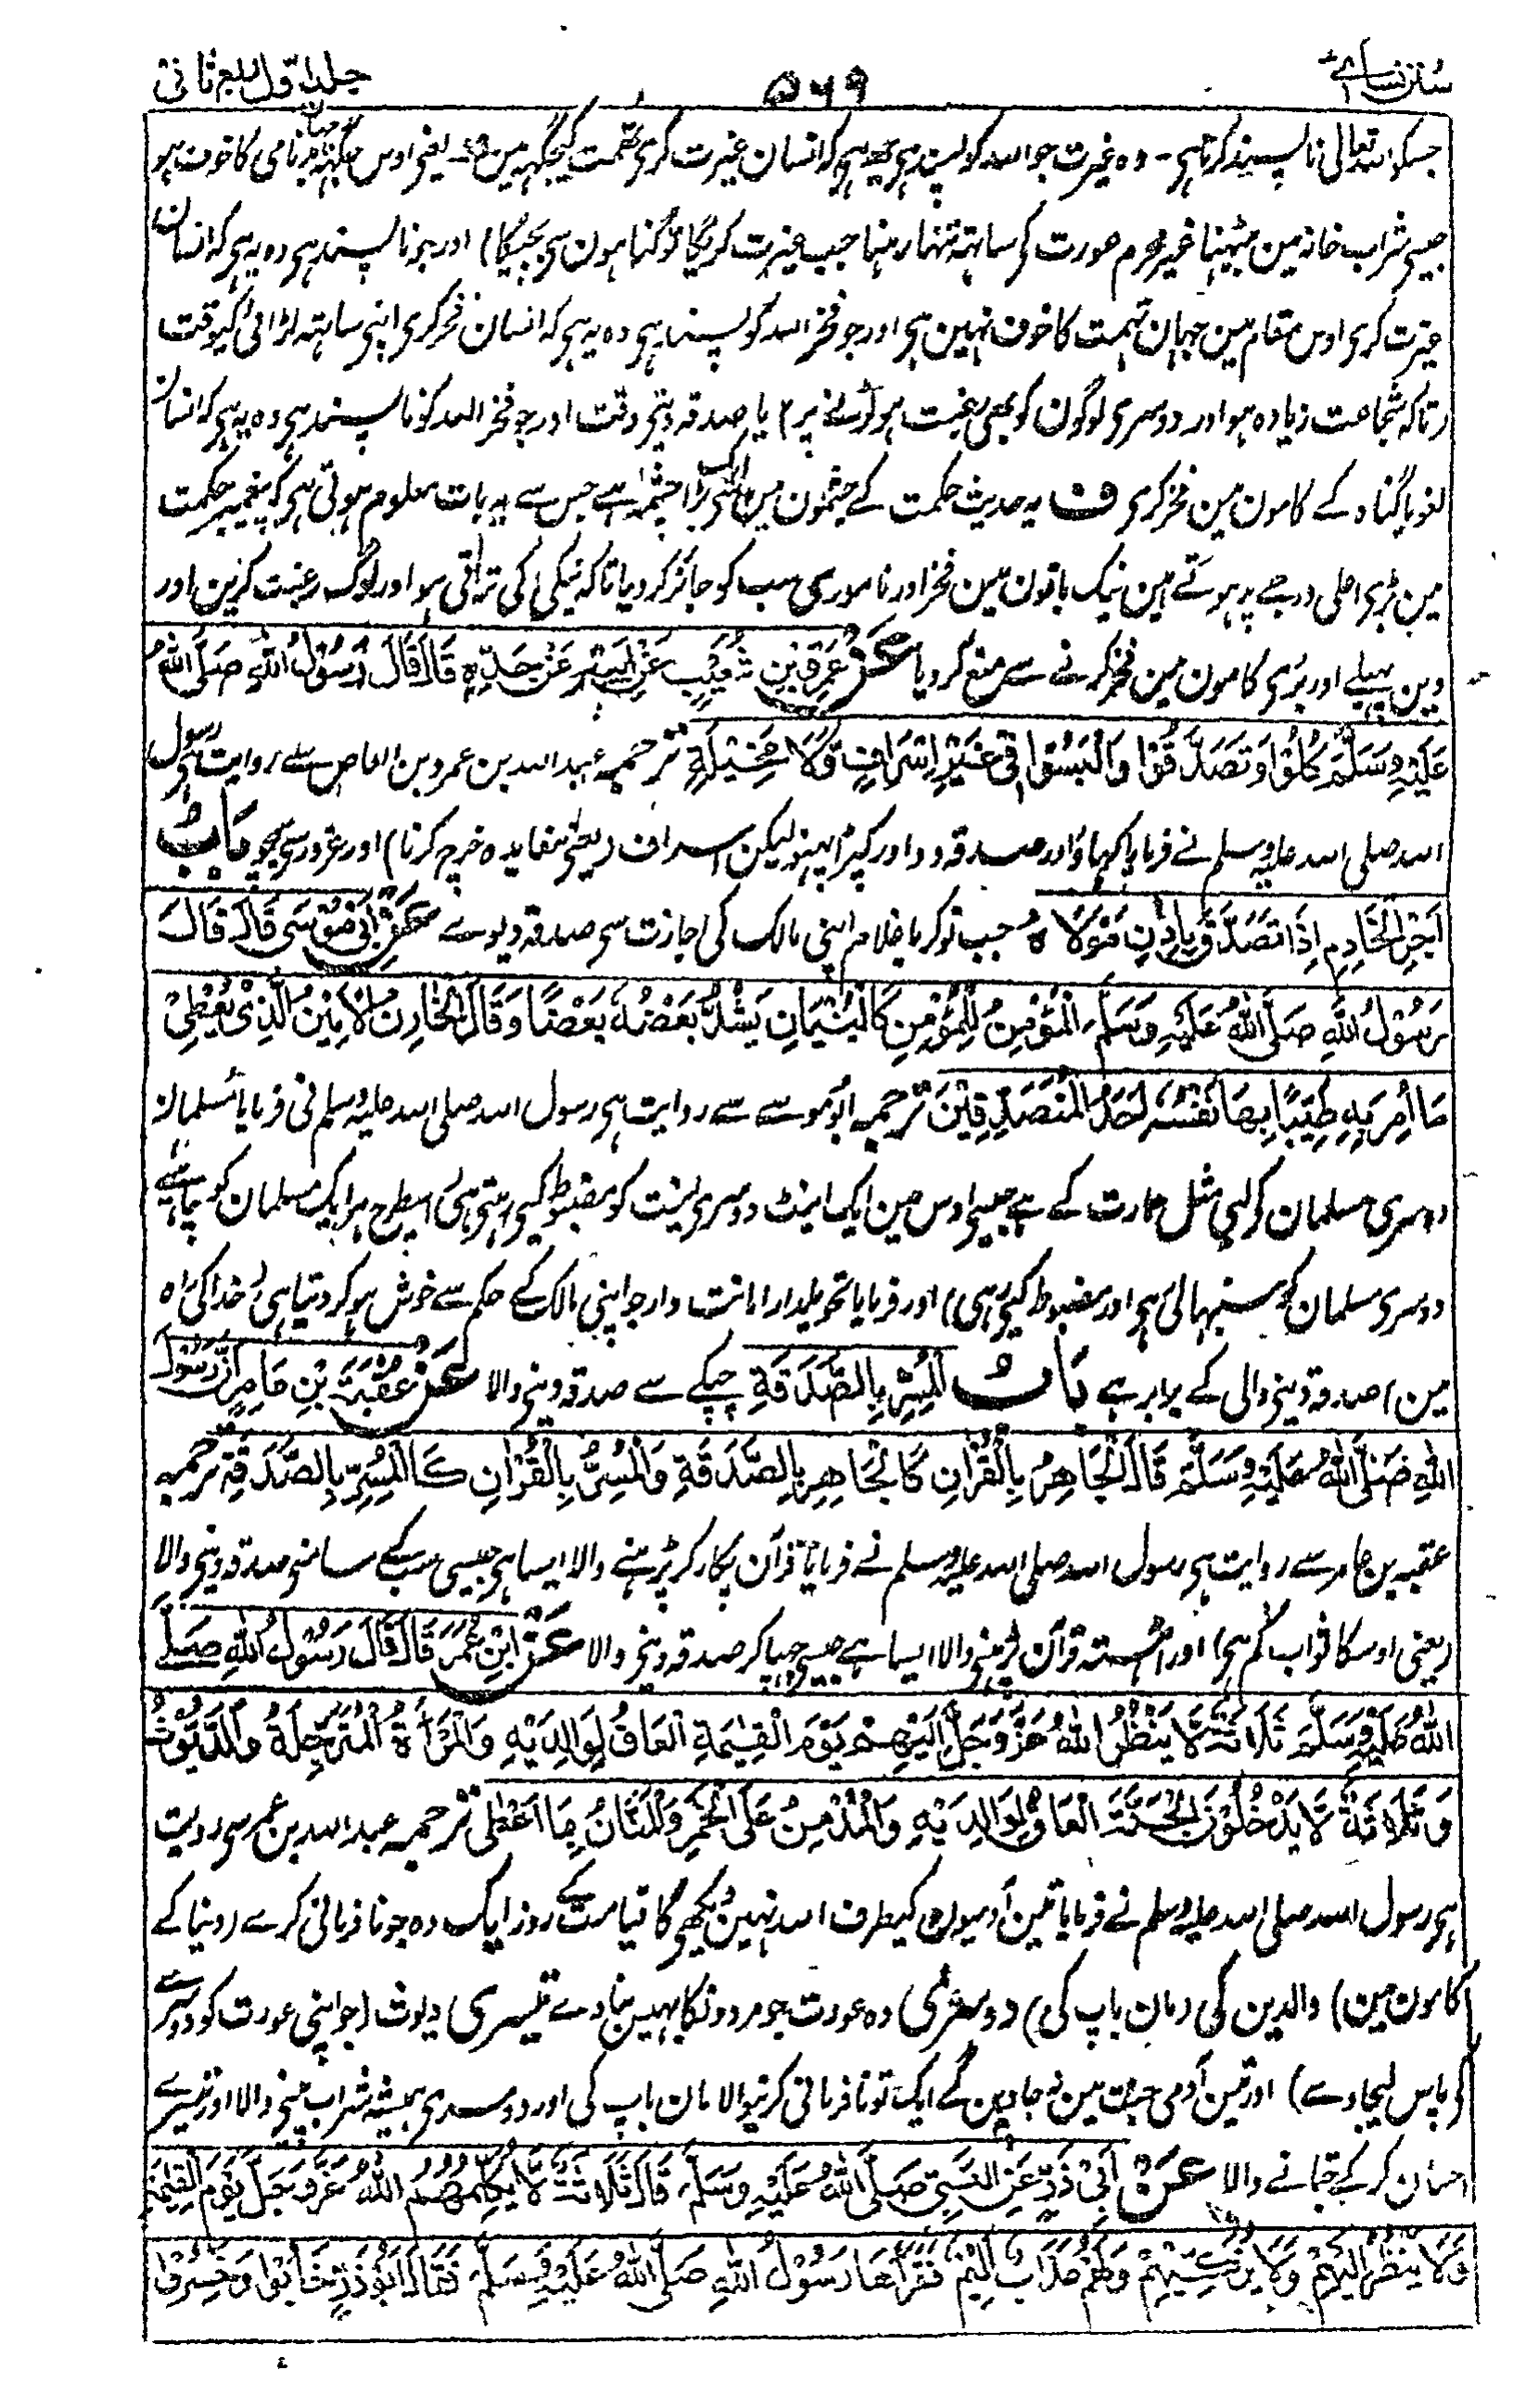 سنن نسائی ۵۶۹ جلد اول طبع ثانی
جسکو اللہ تعالی ناپسند کرتا ہی۔ وہ غیرت جو اللہ کو پسند ہی یہہ ہی کہ انسان غیرت کری تہمت کی جگہہ مین یعنی اوس جگہہ جہان بدنامی کا خوف ہو
جیسی شراب خانہ مین بیٹھنا غیر محرم عورت کی ساتھ تنہا رہنا جب غیرت کریگا تو گناہون سی بچیگا) اور جو ناپسند ہی وہ یہ ہی کہ انسان
غیرت کری اوس مقام مین جہان تہمت کا خوف نہین ہی اور جو فخر اللہ کو پسند ہی وہ یہ ہی کہ انسان فخر کری اپنی ساتھ لڑائی کیوقت
(تاکہ شجاعت زیادہ ہو اور دوسری لوگون کو بھی رغبت ہو لڑنے پر) یا صدقہ دیتی وقت اور جو فخر اللہ کو ناپسند ہی وہ یہ ہی کہ انسان
لغو یا گناہ کے کامون مین فخر کری ف یہ حدیث حکمت کے چشمون مین ایک بڑا چشمہ ہے جس سے یہ بات معلوم ہوتی ہی کہ پیغمبر حکمت
مین بڑی اعلی درجے پر ہوتے ہین نیک باتون مین فخر اور ناموری سب کو جائز کر دیا تاکہ نیکی کی ترقی ہو اور لوگ رغبت کرین اور
دین پہیلے اور بری کامون مین فخر کرنے سے منع کر دیا عَنْ عَمْرِو بْنِ شُعَيْبٍ عَنْ اَبِيْهِ عَنْ جَدِّهٖ قَالَ قَالَ رَسُوْلُ اللّٰهِ صَلَّى اللّٰهُ
عَلَيْهِ وَسَلَّمَ كُلُوْا وَتَصَدَّقُوْا وَالْبَسُوْا فِيْ غَيْرِ اِسْرَافٍ وَّلَا مَخِيْلَةٍ ترجمہ عبد اللہ بن عمرو بن العاص سے روایت ہی رسول
اللہ صلی اللہ علیہ وسلم نے فرمایا کہاؤ اور صدقہ دو اور کپڑا پہنو لیکن اسراف (یعنی بیفایدہ خرچ کرنا) اور غرور سی بچو بَابُ
اَجْرِ الْخَادِمِ اِذَا تَصَدَّقَ بِاِذْنِ مَوْلَاهُ جب نوکر یا غلام اپنی مالک کی اجازت سی صدقہ دیوے عَنْ اَبِيْ مُوْسٰى قَالَ قَالَ
رَسُوْلُ اللّٰهِ صَلَّى اللّٰهُ عَلَيْهِ وَسَلَّمَ الْمُؤْمِنُ لِلْمُؤْمِنِ كَالْبُنْيَانِ يَشُدُّ بَعْضُهٗ بَعْضًا وَقَالَ الْخَازِنُ الْاَمِيْنُ الَّذِيْ يُعْطِيْ
مَا اُمِرَ بِهٖ طَيِّبًا بِهَا نَفْسُهٗ اَحَدُ الْمُتَصَدِّقِيْنَ ترجمہ ابو موسے سے روایت ہی رسول اللہ صلی اللہ علیہ وسلم نی فرمایا مسلمان
دوسری مسلمان کی لیی مثل عمارت کے ہے جیسی اوس مین ایک اینٹ دوسری اینٹ کو مضبوط کیی رہتی ہی اسیطرح ہر ایک مسلمان کو چاہیے
دوسری مسلمان کو سنبہالی رہی اور مضبوط کیی رہی) اور فرمایا تحویلدار امانت دار جو اپنی مالک کے حکم سے خوش ہو کر دیتا ہی (خدا کی راہ
مین) صدقہ دینی والی کے برابر ہے بَابُ الْمُسِرِّ بِالصَّدَقَةِ چپکے سے صدقہ دینی والا عَنْ عُقْبَةَ بْنِ عَامِرٍ اَنَّ رَسُوْلَ
اللّٰهِ صَلَّى اللّٰهُ عَلَيْهِ وَسَلَّمَ قَالَ الْجَاهِرُ بِالْقُرْاٰنِ كَالْجَاهِرِ بِالصَّدَقَةِ وَالْمُسِرُّ بِالْقُرْاٰنِ كَالْمُسِرِّ بِالصَّدَقَةِ ترجمہ
عقبہ بن عامر سے روایت ہی رسول اللہ صلی اللہ علیہ وسلم نے فرمایا قرآن پکار کر پڑہنے والا ایسا ہی جیسی سب کے سامنی صدقہ دینی والا
(یعنی اوسکا ثواب کم ہی) اور آہستہ قرآن پڑہنی والا ایسا ہے جیسی چہپا کر صدقہ دینی والا عَنْ ابْنِ عُمَرَ قَالَ قَالَ رَسُوْلُ اللّٰهِ صَلَّى
اللّٰهُ عَلَيْهِ وَسَلَّمَ ثَلَاثَةٌ لَّا يَنْظُرُ اللّٰهُ عَزَّ وَجَلَّ اِلَيْهِمْ يَوْمَ الْقِيٰمَةِ الْعَاقُّ لِوَالِدَيْهِ وَالْمَرْاَةُ الْمُتَرَجِّلَةُ وَالدَّيُّوْثُ
وَثَلَاثَةٌ لَّا يَدْخُلُوْنَ الْجَنَّةَ الْعَاقُّ لِوَالِدَيْهِ وَالْمُدْمِنُ عَلَى الْخَمْرِ وَالْمَنَّانُ بِمَا اَعْطٰى ترجمہ عبد اللہ بن عمر سی روایت
ہی رسول اللہ صلی اللہ علیہ وسلم نے فرمایا تین آدمیون کیطرف اللہ نہین دیکھی گا قیامت کے روز ایک وہ جو نافرمانی کرے (دنیا کے
کامون مین) والدین کی (مان باپ کی) دوسری وہ عورت جو مردونکا بہیس بنا دے تیسری دیوث (جو اپنی عورت کو دوسرے
کی پاس لیجاوے) اور تین آدمی جنت مین نہ جاوین گے ایک تو نافرمانی کرنیوالا مان باپ کی اور دوسری ہمیشہ شراب پینی والا اور تیسرے
احسان کر کے جتانے والا عَنْ اَبِيْ ذَرٍّ عَنِ النَّبِيِّ صَلَّى اللّٰهُ عَلَيْهِ وَسَلَّمَ قَالَ ثَلَاثَةٌ لَّا يُكَلِّمُهُمُ اللّٰهُ عَزَّ وَجَلَّ يَوْمَ الْقِيٰمَةِ
وَلَا يَنْظُرُ اِلَيْهِمْ وَلَا يُزَكِّيْهِمْ وَلَهُمْ عَذَابٌ اَلِيْمٌ فَقَرَاَهَا رَسُوْلُ اللّٰهِ صَلَّى اللّٰهُ عَلَيْهِ وَسَلَّمَ فَقَالَ اَبُوْ ذَرٍّ خَابُوْا وَخَسِرُوْا